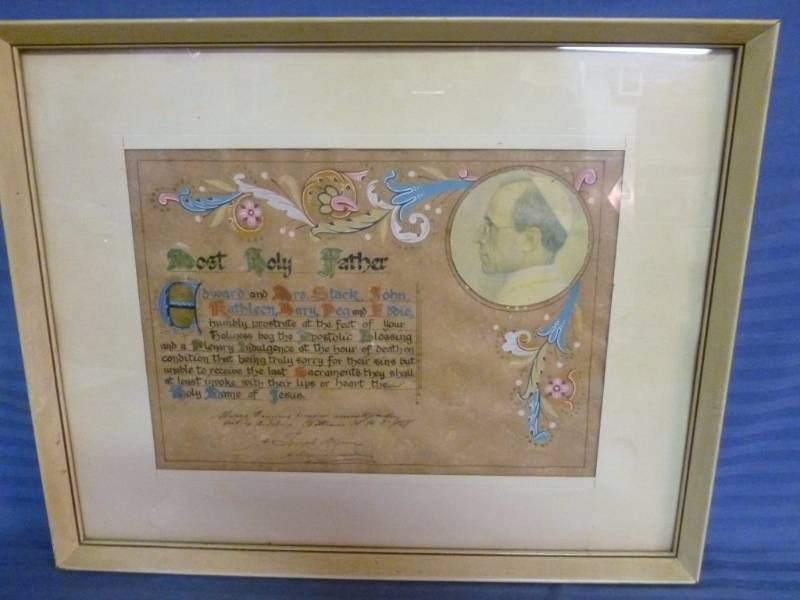 Most Holy Father
Edward and Mrs. Stack, John,
Kathleen, Mary, Peg and Eddie,
humbly prostrate at the feet of your
Holiness beg the Apostolic Blessing
and a Plenary Indulgence at the hour of death on
condition that being truly sorry for their sins but
unable to receive the last Sacraments they shall
at least invoke with their lips or heart the
Holy Name of Jesus.